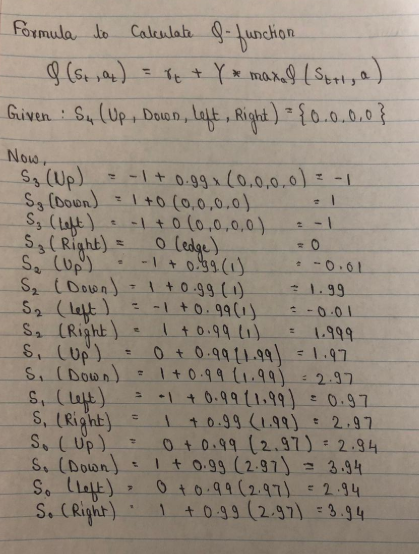 Formula to Calculate Q-function
Q(St,at) = rt + Y * maxaQ(St+1,a)
Given : S4 (Up, Down, Left, Right) = {0.0.0.0}
Now,
S3 (Up) = -1 + 0.99 x (0,0,0,0) = -1
S3 (Down) = 1+0 (0,0,0,0) = 1
S3 (left) = -1 + 0 (0,0,0,0) = -1
S3 (Right) = 0 (edge) = 0
S2 (Up) = -1 + 0.99(1) = -0.01
S2 (Down) = 1 + 0.99 (1) = 1.99
S2 (left) = -1 + 0.99(1) = -0.01
S2 (Right) = 1 + 0.99 (1) = 1.999
S1 (Up) = 0 + 0.99(1.99) = 1.97
S1 (Down) = 1 + 0.99 (1.99) = 2.97
S1 (left) = -1 + 0.99 (1.99) = 0.97
S1 (Right) = 1 + 0.99 (1.99) = 2.97
S0 (Up) = 0 + 0.99 (2.97) = 2.94
S0 (Down) = 1 + 0.99 (2.97) = 3.94
S0 (left) = 0 + 0.99 (2.97) = 2.94
S0 (Right) = 1 + 0.99 (2.97) = 3.94